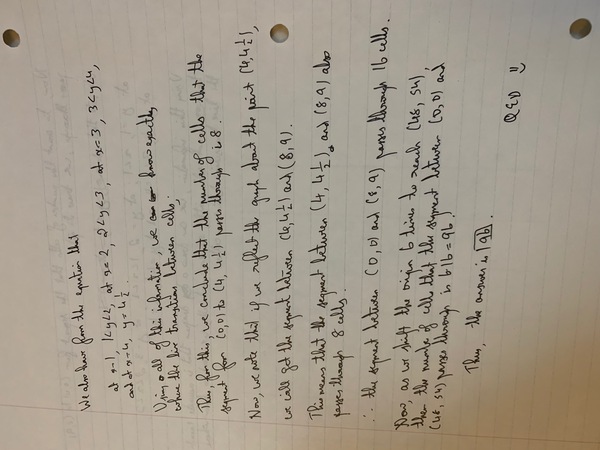 We also have from the equation that
at x=1, 1<y<2, at x=2, 2<y<3, at x=3, 3<y<4,
and at x=4, y=4½.
Using all of this information, we know exactly
where the line transitions between cells,
Thus, from this, we conclude that the number of cells that the
segment from (0,0) to (4, 4½) passes through is 8.
Now, we note that if we reflect the graph about the point (4,4½),
we will get the segment between (4,4½) and (8,9).
This means that the segment between (4, 4½) and (8,9) also
passes through 8 cells.
∴ the segment between (0,0) and (8,9) passes through 16 cells.
Now, as we shift the origin 6 times to reach (48, 54),
then the number of cells that the segment between (0,0) and
(48, 54) passes through is 6·16=96.
Thus, the answer is 96.
QED !!